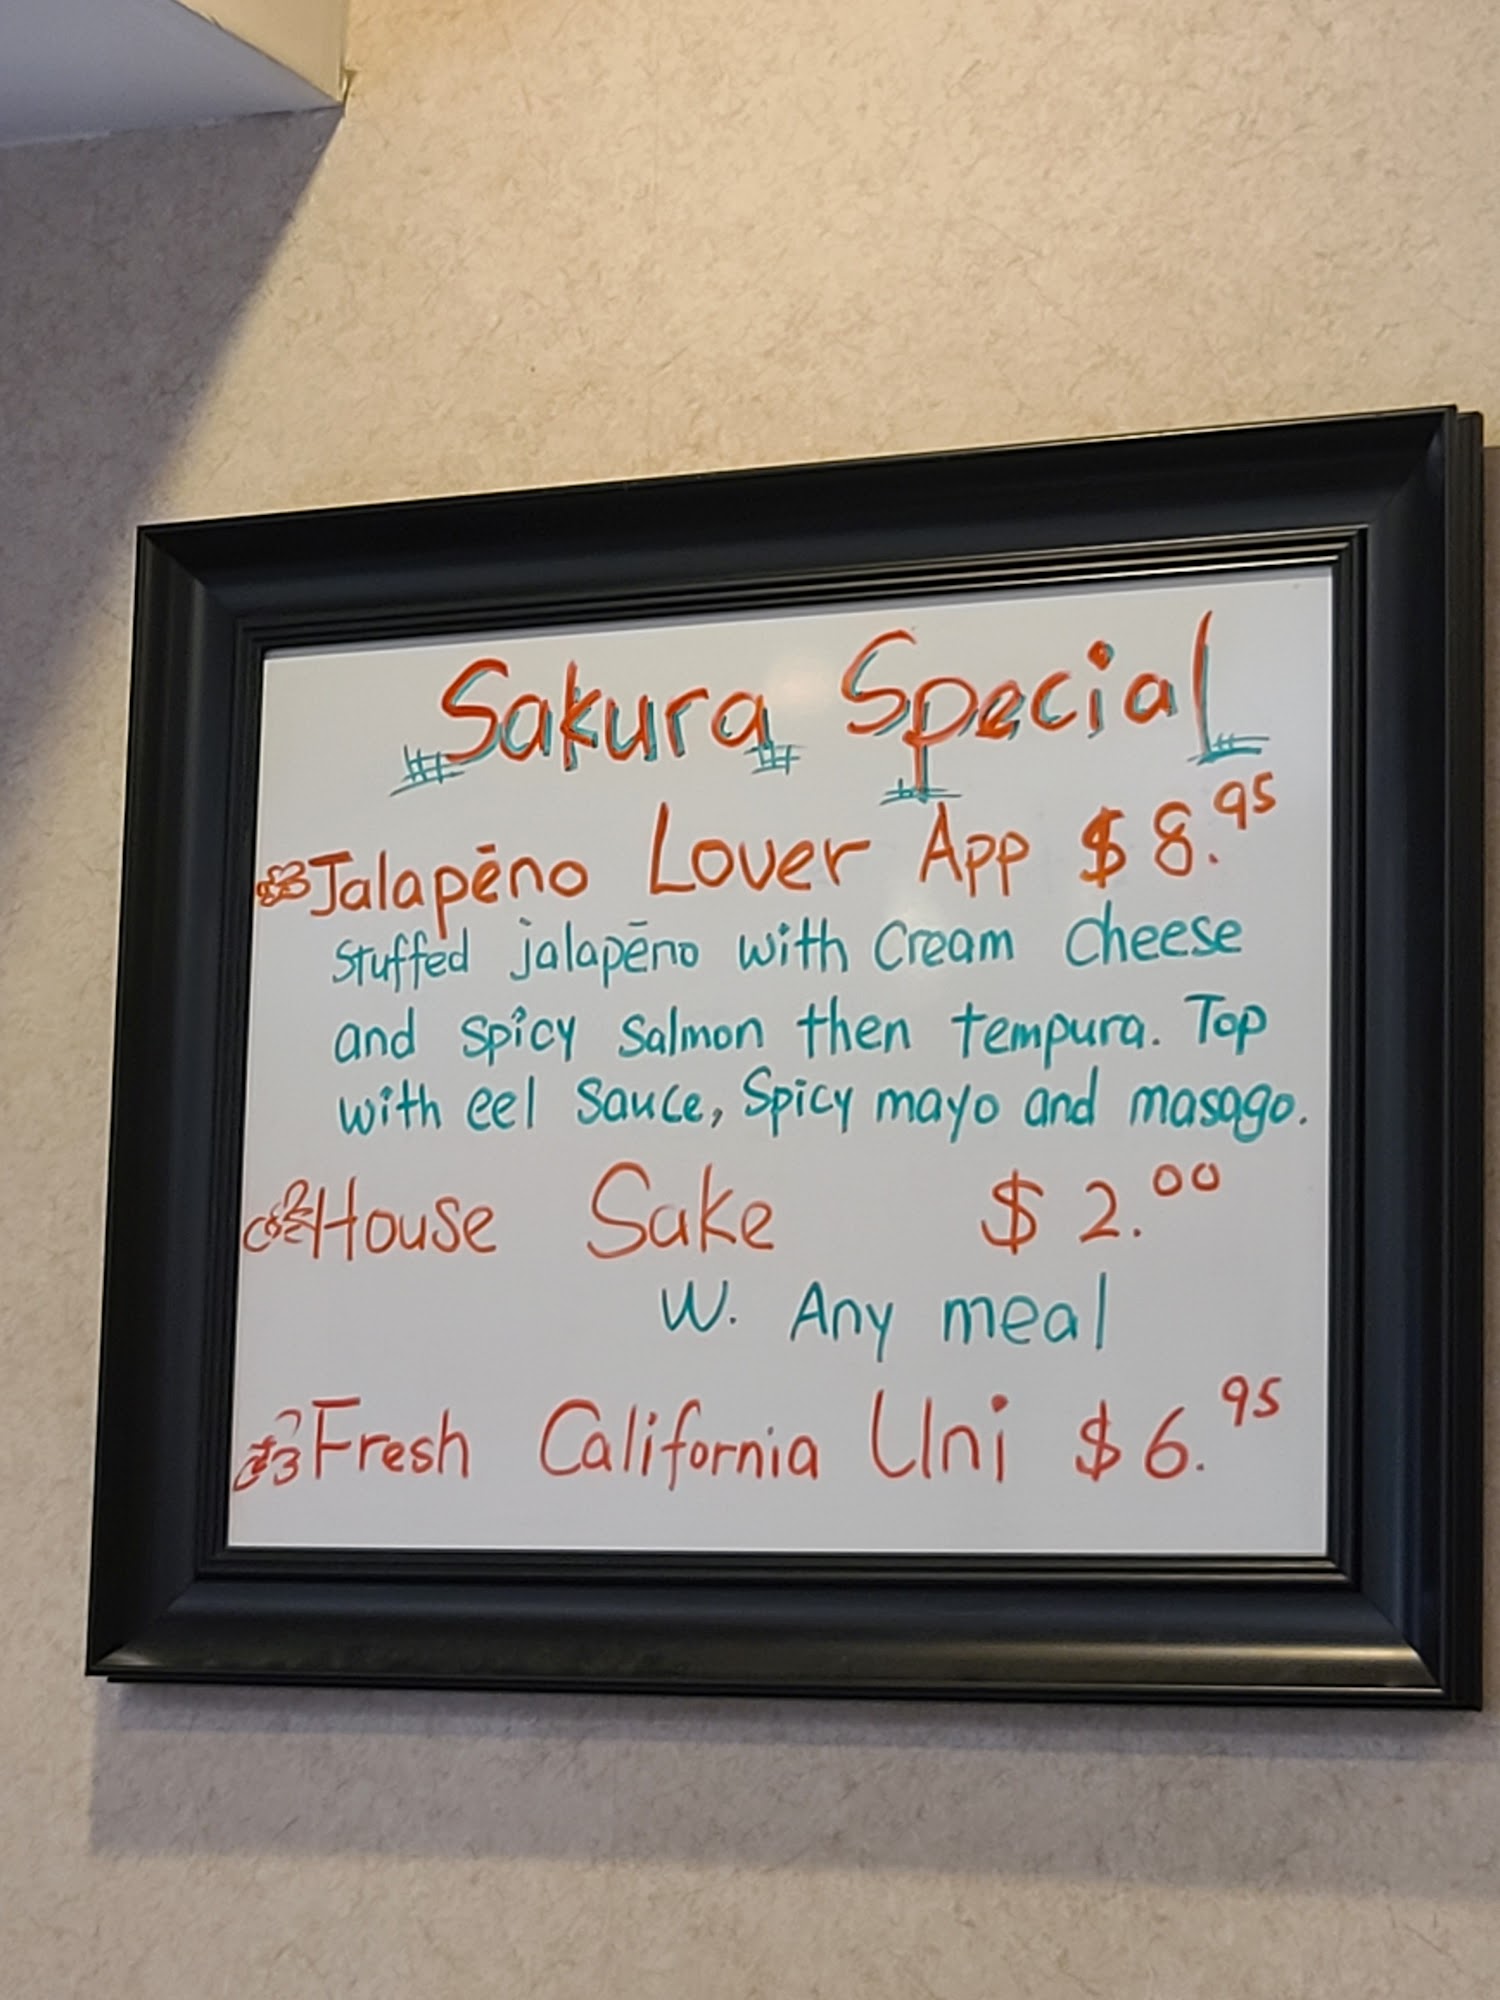 Sakura Special
Jalapēno Lover App $8.95
Stuffed jalapēno with Cream Cheese
and spicy salmon then tempura. Top
with eel sauce, Spicy mayo and masago.
House Sake $2.00
W. Any meal
Fresh California Uni $6.95